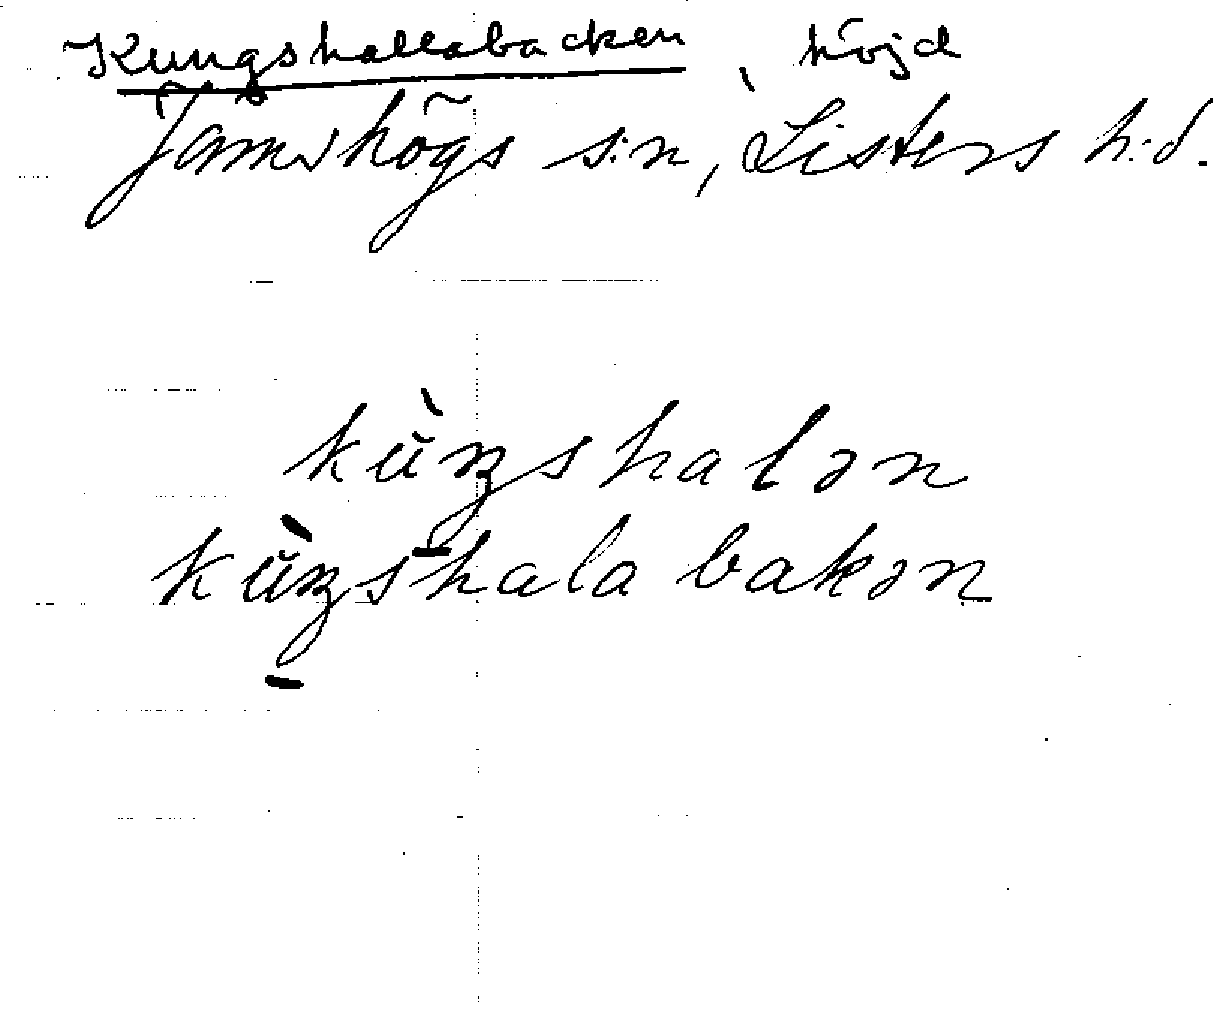 Kungshallabacken, höjd
Jämshögs s:n, Listers h:d.
kùŋshalən
kùŋshala bakən